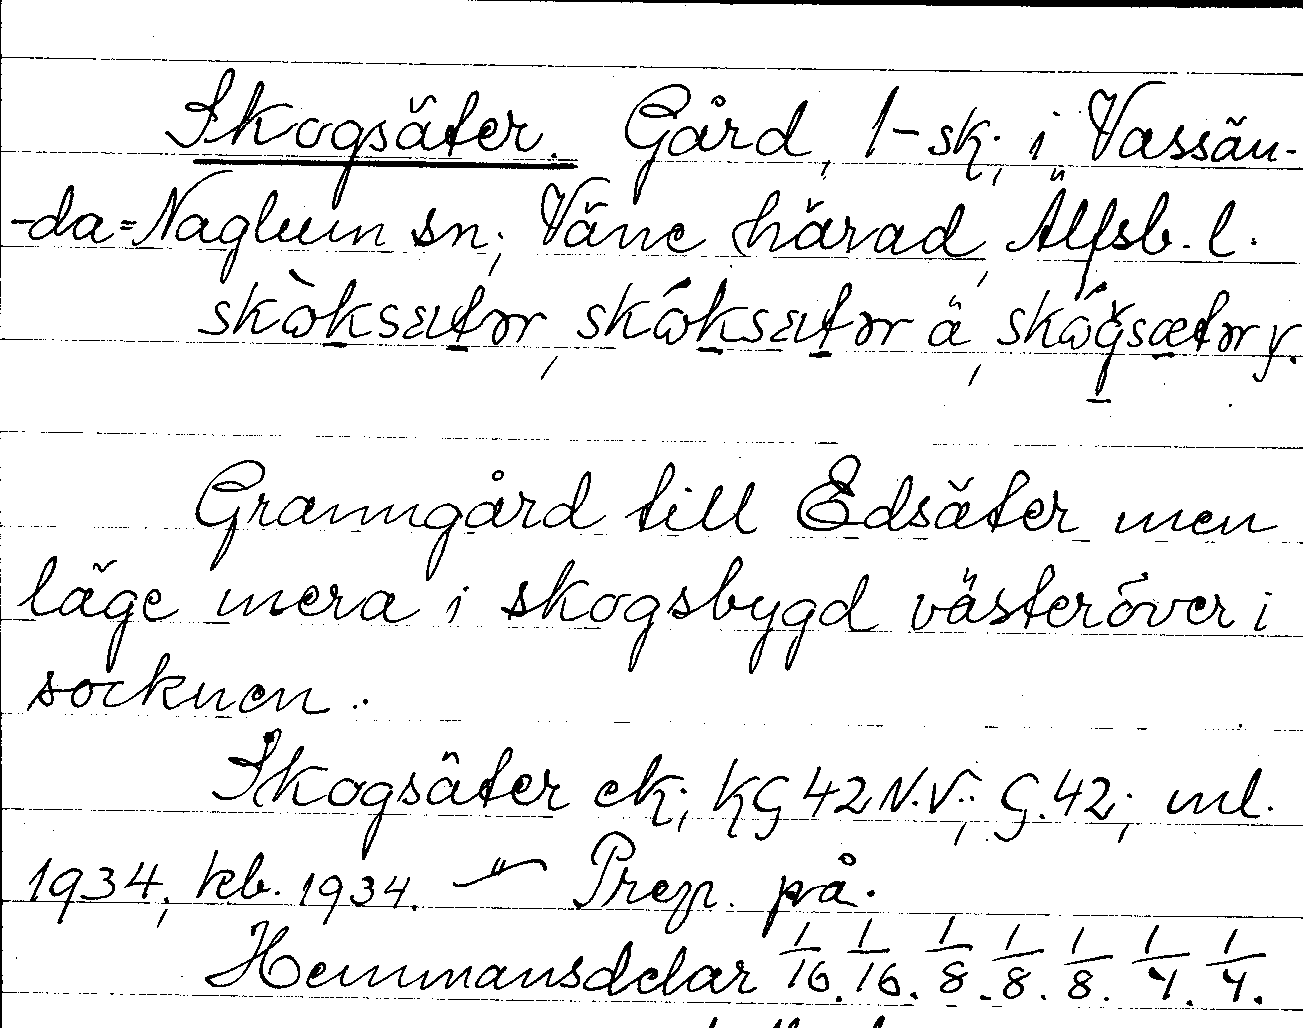 Skogsäter. Gård, 1-sk; i Vassän-
-da=Naglum sn; Väne härad, Älfsb. l.
skòksætər, skóksætər ä, skógsætər y.
Granngård till Edsäter men
läge mera i skogsbygd västeröver i
socknen.
Skogsäter ek; KG 42 N.V.; G. 42; ml.
1934; kb. 1934. — Prep. på.
Hemmansdelar 1/16. 1/16. 1/8. 1/8. 1/8. 1/4. 1/4.